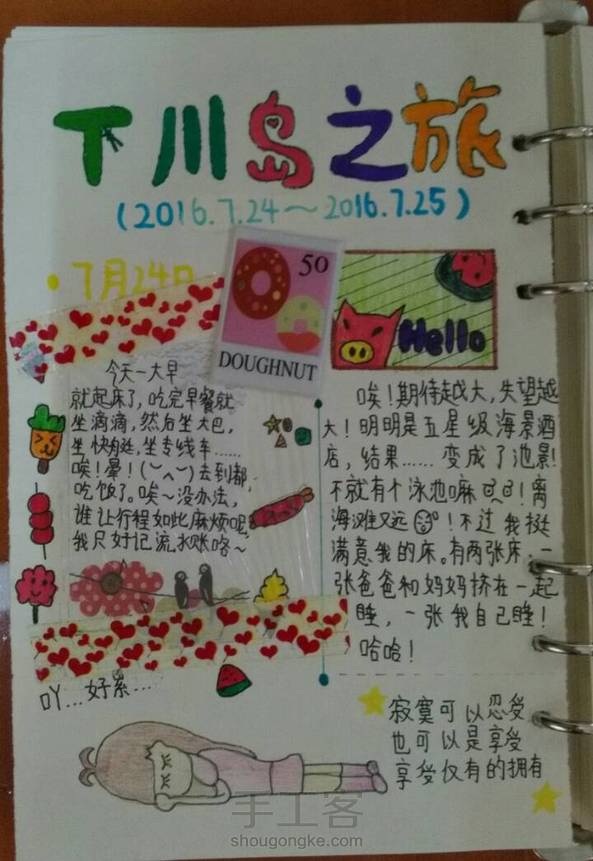 下川岛之旅
(2016.7.24～2016.7.25)
7月24日
50
DOUGHNUT
Hello
今天一大早
就起床了，吃完早餐就
坐滴滴，然后坐大巴，
坐快艇，坐专线车……
唉！晕！(︶︿︶)去到都
吃饭了。唉～没办法，
谁让行程如此麻烦呢，
我只好记流水账咯～
唉！期待越大，失望越
大！明明是五星级海景酒
店，结果……变成了池景！
不就有个泳池嘛！离
海滩又远！不过我挺
满意我的床。有两张床，一
张爸爸和妈妈挤在一起
睡，一张我自己睡！
哈哈！
吖…好累…
寂寞可以忍受
也可以是享受
享受仅有的拥有
手工客
shougongke.com